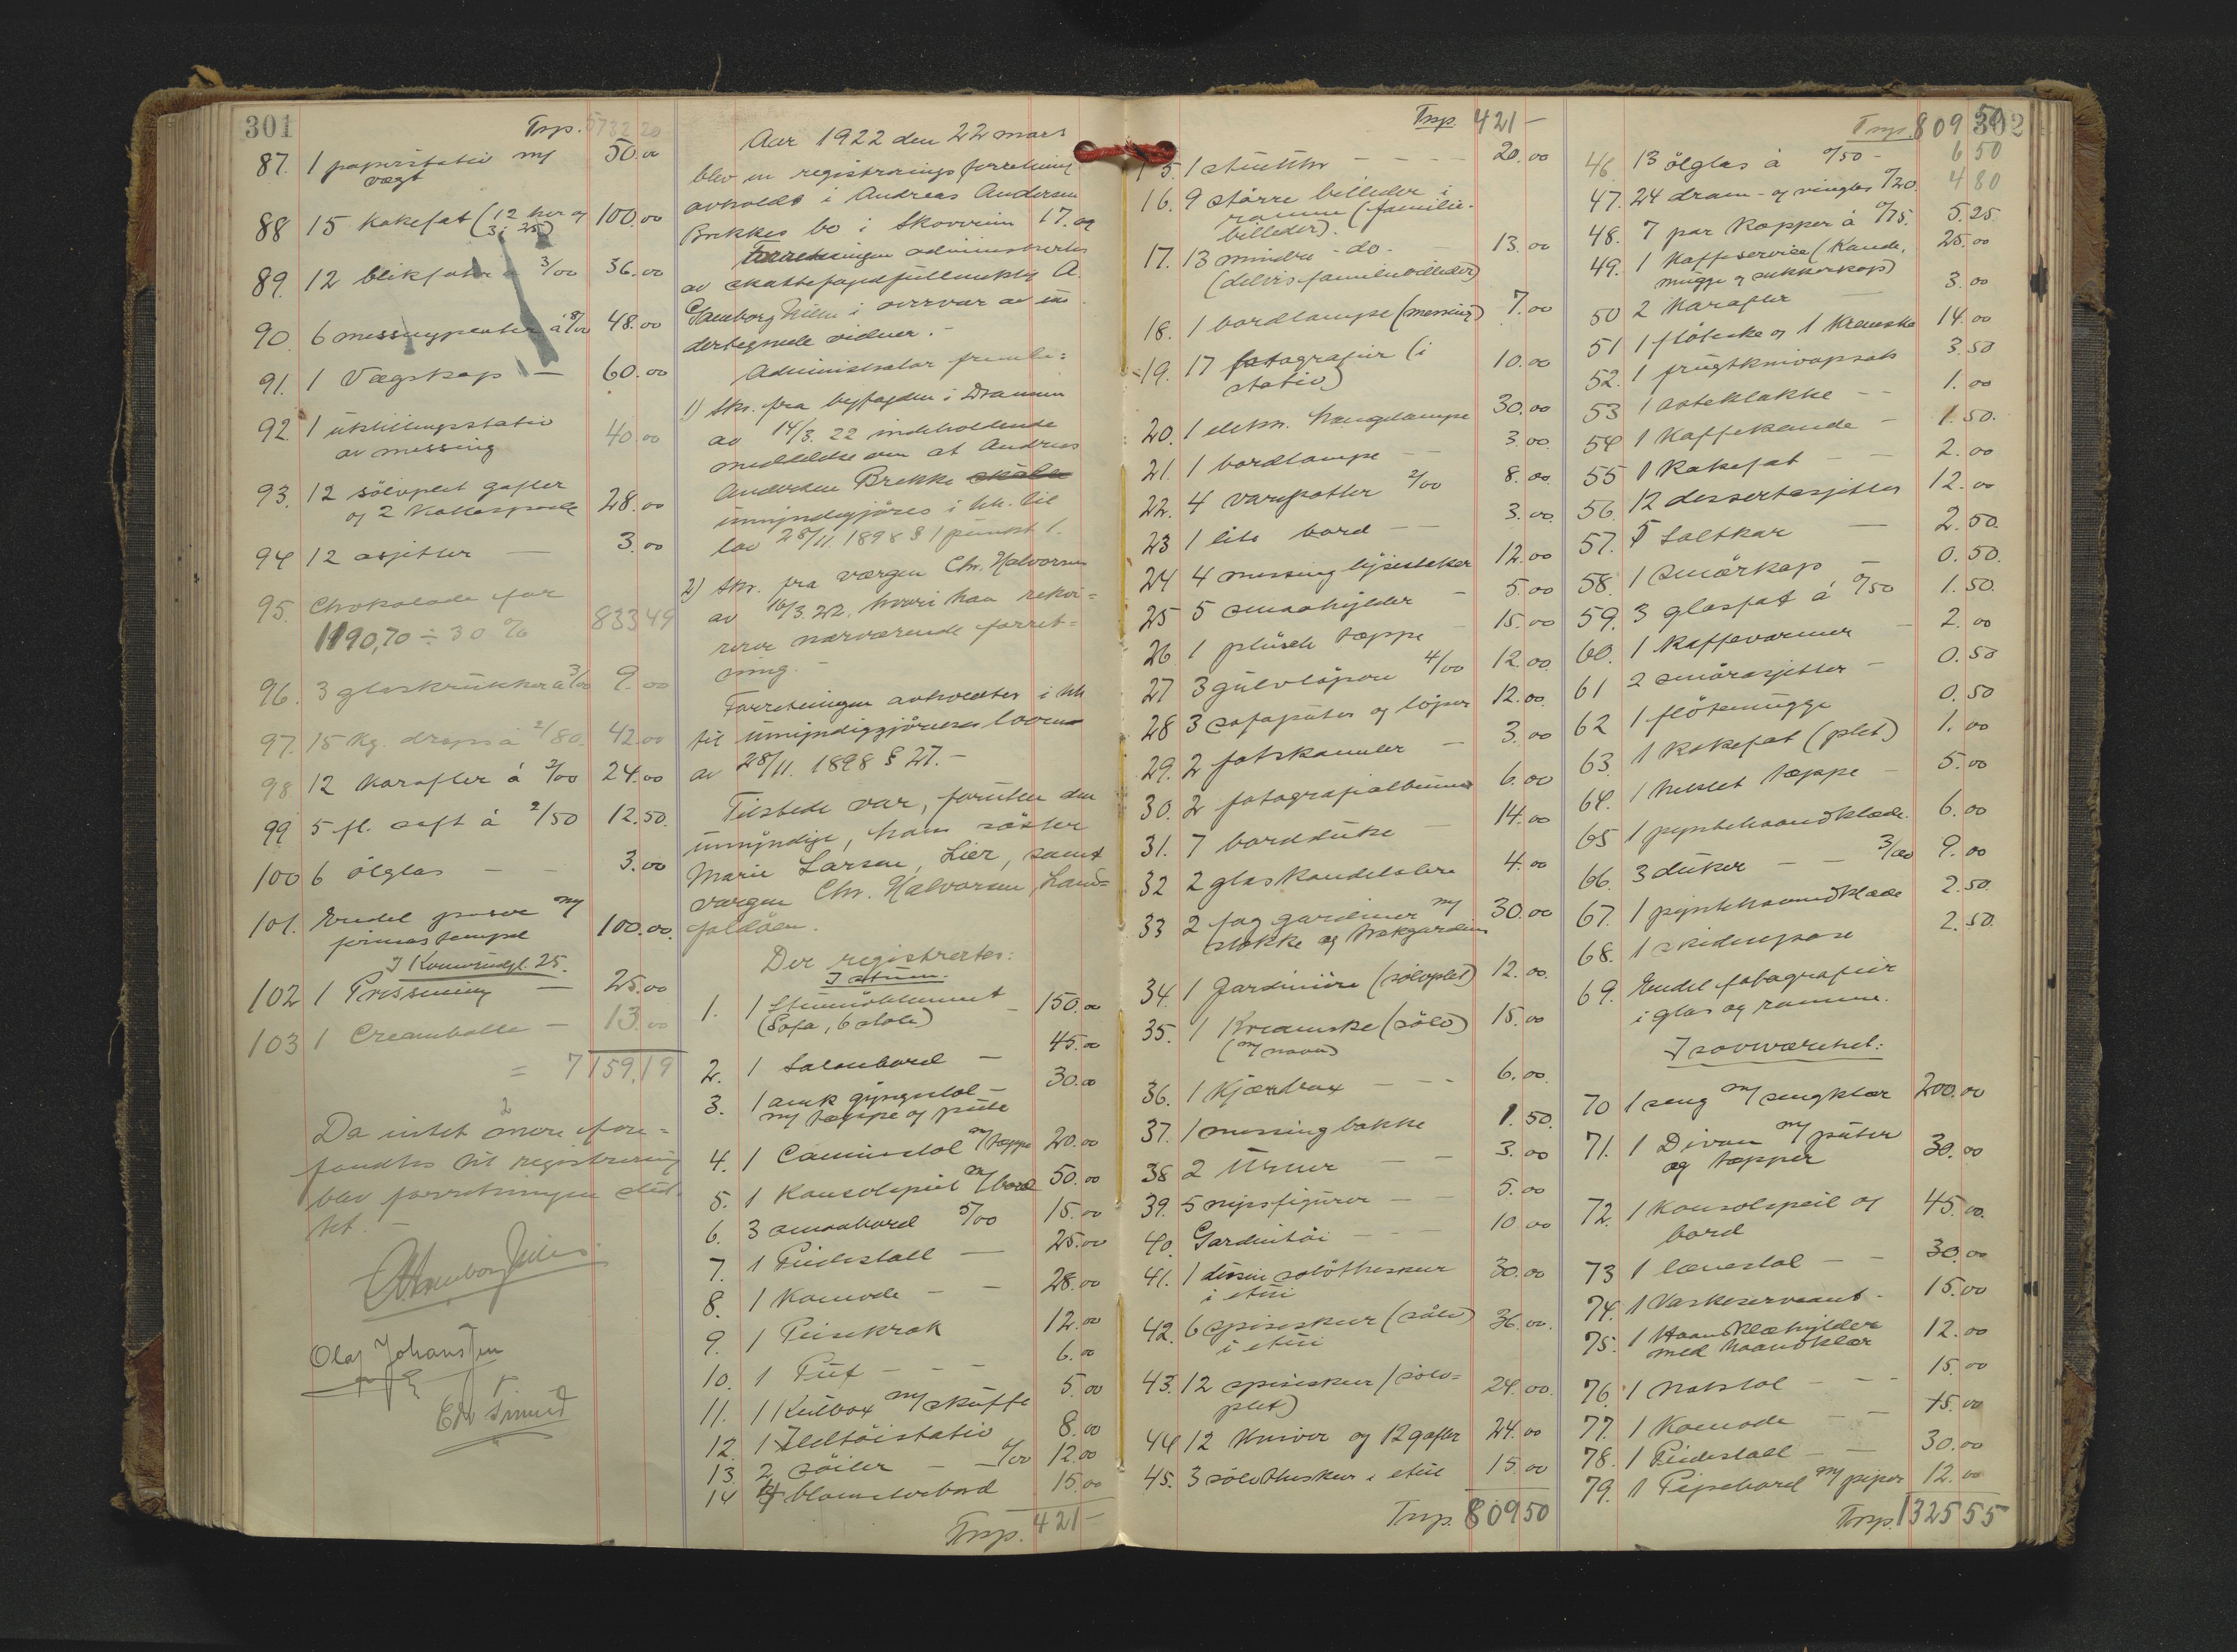 301
Trsp. 5732 20
87. 1 papirstativ m/ 50.00
vegt
88 15 Kakefat (12 her og 100.00
3 i 25)
89. 12 blikfater á 3/00 36.00
90. 6 messingplater á 8/00 48.00
91. 1 Vægskap — 60.00
92. 1 utstillingsstativ
av messing 40.00
93. 12 sölvplet gafler
og 2 Kakespade 28.00
94 12 asjetter — 3.00
95. Chokolade for
1190,70 ÷ 30 % 833 49
96. 3 glaskrukker á 3/00 9.00
97. 15 kg. drops á 2/80. 42.00
98 12 Karafler á 2/00 24.00
99 5 fl. saft á 2/50 12.50.
100 6 ölglas — — 3.00
101. Endel poser m/
firmastempel 100.00.
I Kongensgt. 25.
102 1 Presenning — 25.00
103 1 Creambolle — 13.00
= 7159,19
Da intet mere fore=
fandtes til registrering
blev forretningen slut-
tet. —
Olaf Johansen
Aar 1922 den 22 mars
blev en registreringsforretning
avholdt i Andreas Andersen
Brekkes bo i Skoveien 17. og
Forretningen administrertes
av skattefogedfuldmektig A.
Hamborg Nilsen i overvær av un
dertegnede vidner. —
Administrator fremla:
1) Skr. fra byfogden i Drammen
av 14/3. 22 indeholdende
meddelelse om at Andreas
Andersen Brekke
umyndiggjöres i hh. til
lov 28/11. 1898 § 1 punkt 1.
2) Skr. fra værgen Chr. Halvorsen
av 16/3. 22. hvori han rekvi=
rerer nærværende forret=
ning. —
Forretningen avholdtes i hh
til umyndiggjörelsesloven
av 28/11. 1898 § 27. —
Tilstede var, foruten den
umyndige, hans söster
Marie Larsen, Lier, samt
værgen Chr. Halvorsen, Land=
falløen.
Der registrertes:
I stuen:
1. 1 Stuemöblement
(Sofa, 6 stole) — 150.00
2. 1 Salonbord — 45.00
3. 1 amk gyngestol — 30.00
m/ tæppe og pute
4. 1 Caminstol m/tæppe 20.00
5. 1 Konsolspeil m/bord 50.00
6. 3 smaabord 5/00 15.00
7. 1 Piedestall — 25.00
8. 1 Komode — — 28.00
9. 1 Peisekrak 12.00
10. 1 Puf — — — 6.00
11. 1 Kulbox m/skuffe 5.00
12. 1 Ildtöistativ 8.00
13. 2 söiler — 6/00 12.00
14 blomsterbord 15.00
Trsp. 421 —
Trsp. 421 —
15. 1 — — — 20.00
16. 9 större billeder i
ramme (familie-
billeder).
17. 13 mindre - do - — 13.00
(delvis familiebilleder)
18. 1 bordlampe (messing) 7.00
19. 17 fotografier (i
stativ) 10.00
20. 1 elektr. hængelampe 30.00
21. 1 bordlampe — — 3.00
22. 4 varepotter 2/00 8.00
23 1 lite bord — — 3.00.
24 4 messing lysestaker 12.00
25 5 smaahylder — 5.00
26 1 plüsch tæppe — 15.00
27 3 gulvlöpere 4/00 12.00
28 3 sofaputer og löper 12.00.
29. 2 fotskamler — 3.00
30. 2 fotografialbumer 6.00
31. 7 bordduke — 14.00
32 2 glas Kandelabre 4.00
33 2 fag gardiner m/ 30.00
stokke og trækgardiner
34 1 Jardiniére (sölvplet) 12.00.
35. 1 Kremske (sölv) 15.00
(m/ navn)
36. 1 Kjærdrax — — — 6.00.
37. 1 messing bakke 1.50.
38 2 Urner — — 3.00
39. 5 nipsfigurer — — 5.00
40. Gardintöi — — 10.00
41. 1 dusin sölvtheskeer 30.00
i etui
42. 6 spiseskeer (sölv) 36.00.
i etui
43. 12 spiseskeer (sölv=
plet) 24.00.
44 12 Kniver og 12 gafler 24.00
45. 3 sölvtheskeer i etui 15.00
Trsp. 80950
302
Trsp. 809 50
46 13 ölglas á 0/50 — 6 50
47. 24 dram- og vinglas 0/20. 4 80
48. 7 par Kopper á 0/75. 5.25.
49. 1 Kaffeservice (Kande, 25.00
mugge og sukkerkop)
50 2 Karafler — 3.00
51 1 flöteske og 1 Kremske 14.00
52. 1 frugtknivopsats 3.50
53 1 osteklokke — — 1.00
54 1 Kaffekande — 1.50.
55 1 Kakefat — — 2.00
56. 12 dessertasjetter 12.00
57. 5 Saltkar — 2.50.
58. 1 smörkop — 0.50.
59. 3 glasfat á 0/50 1.50.
60. 1 Kaffevarmer — 2.00
61 2 smörasjetter — 0.50
62 1 flötemugge 0.50
63. 1 Kakefat (plet) 1.00
64. 1 heklet tæppe — 5.00
65 1 pyntehaandklæde. 6.00
66. 3 duker — — 3/00 9.00
67. 1 pyntehaandklæde 2.50.
68. 1 skidenpose 2.50.
69. Endel fotografier
i glas og ramme.
I soveværelset:
70 1 seng m/ sengklær 200.00
71. 1 Divan m/ puter
og tæpper 30.00
72. 1 Konsolspeil og 45.00.
bord
73 1 lænestol — — 30.00
74. 1 Vaskeservant — 15.00
75. 1 Haandklæhylder 12.00
med haandklær
76. 1 Natstol — — — 15.00
77. 1 Komode — — 45.00
78. 1 Piedestall — — 30.00
79. 1 Pipebord m/ piper 12.00
Trsp. 1325 55